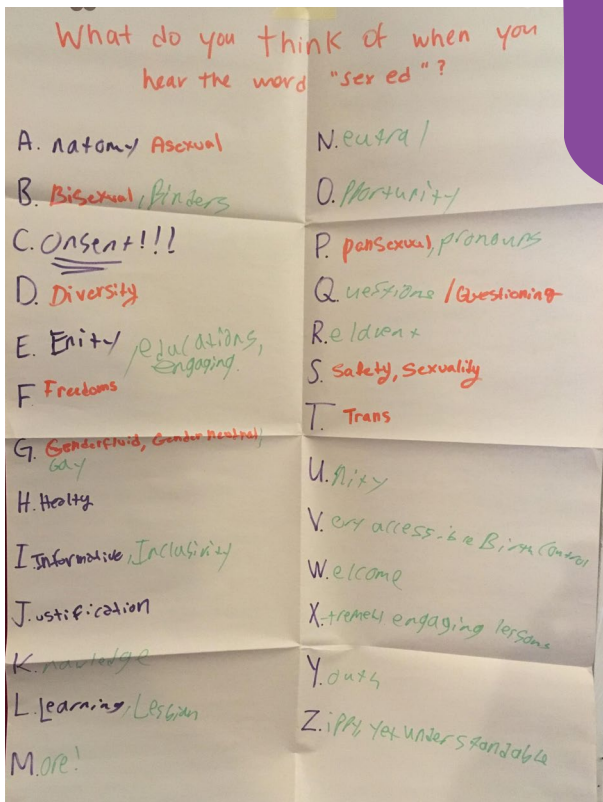 What do you think of when you
hear the word "sex ed"?
A. natomy Asexual
B. Bisexual, Binders
C. onsent!!!
D. Diversity
E. Enity, educations,
engaging.
F Freedoms
G. Genderfluid, Gender neutral,
Gay
H. Healty
I Informative, Inclusivity
J. ustification
K. nowledge
L. Learning, Lesbian
M. ore!
N. eutral
O. pportunity
P. pansexual, pronouns
Q. uestions / Questioning
R. eldvent
S. Safety, Sexuality
T. Trans
U. nity
V. ery accessible Birth Control
W. elcome
X. tremely engaging lessons
Y. outh
Z. ippy, yet understandable